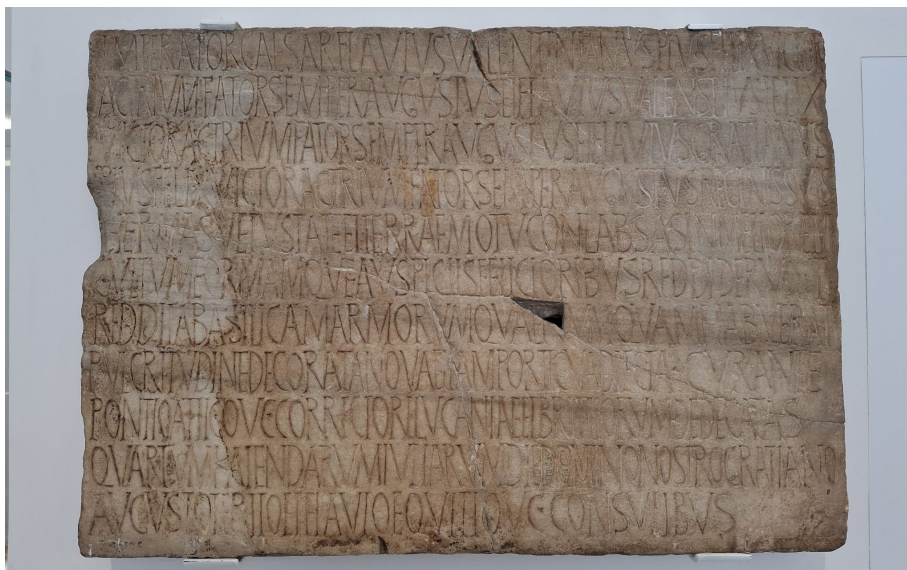 IMPERATOR CAESAR FLAVIVS VALENTINIANVS PIVS FELIX VICTOR
AC TRIVMFATOR SEMPER AVGVSTVS ET FLAVIVS VALENS PIVS FELIX
VICTOR AC TRIVMFATOR SEMPER AVGVSTVS ET FLAVIVS GRATIANVS
PIVS FELIX VICTOR AC TRIVMFATOR SEMPER AVGVSTVS REGINIS SVIS
THERMAS VETVSTATE ET TERRAE MOTV CONLABSAS IN MELIOREM
CVLTVM FIRMAMQVE AVSPICIIS FELICIORIBVS REDDIDERVNT
REDDITA BASILICA MARMORVM QVAM HABVERAT
PVLCRITVDINE DECORATA NOVA ETIAM PORTICV ADIECTA CVRANTE
PONTIO ATTICO V C CORRECTOR LVCANIAE ET BRITTIORVM
QVARTVM KALENDARVM IVLIARVM DIE DOMINO NOSTRO GRATIANO
AVGVSTO TERTIO ET FLAVIO EQVITIO V C CONSVLIBVS